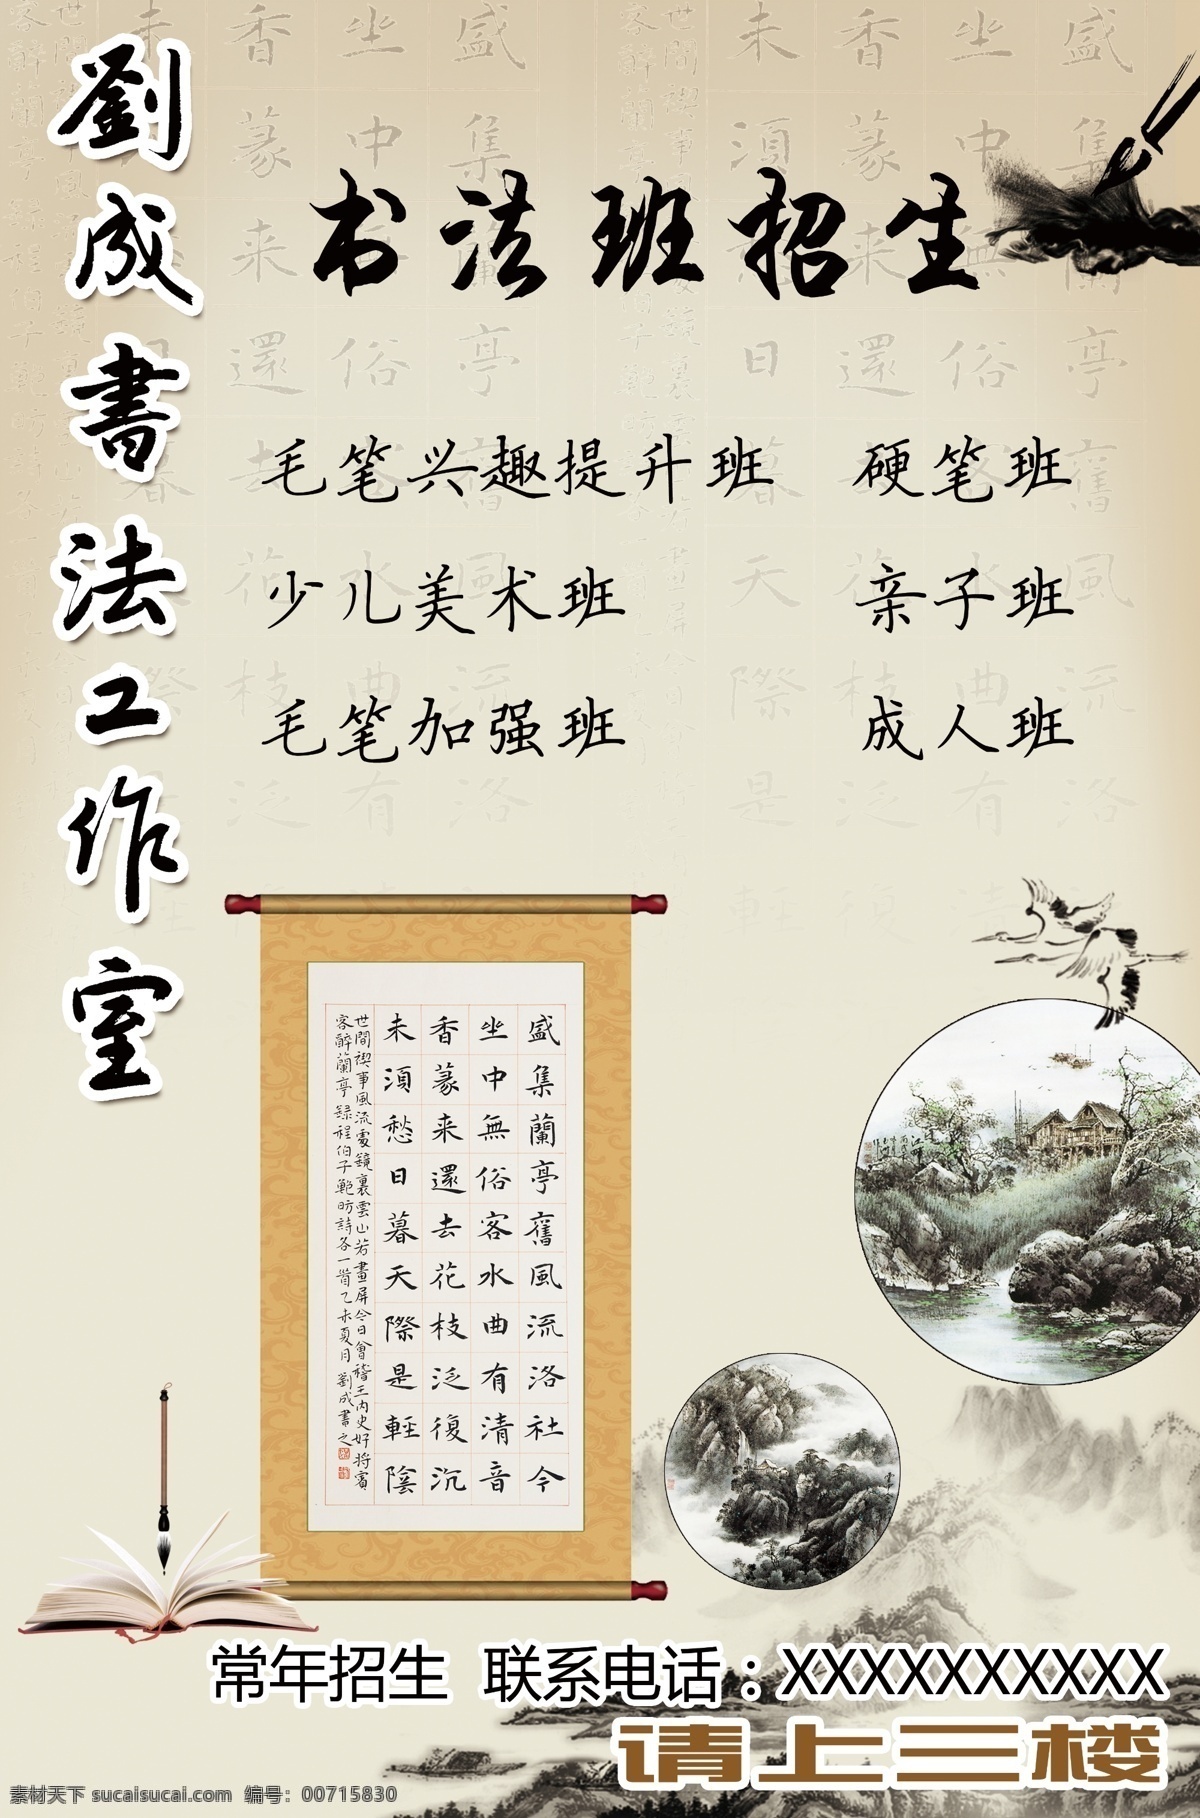 劉成書法工作室
书法班招生
毛笔兴趣提升班 硬笔班
少儿美术班 亲子班
毛笔加强班 成人班
盛集蘭亭舊風流洛社今
坐中無俗客水曲有清音
香篆来還去花枝泛復沉
未須愁日暮天際是輕陰
世間禊事風流處鏡裏雲山若畫屏今日會稽王内史好將賓
客醉蘭亭 録程伯子範昉詩各一首乙未夏月劉成書之
常年招生 联系电话：XXXXXXXXXX
请上三楼
素材天下 sucaisucai.com 编号：00715830